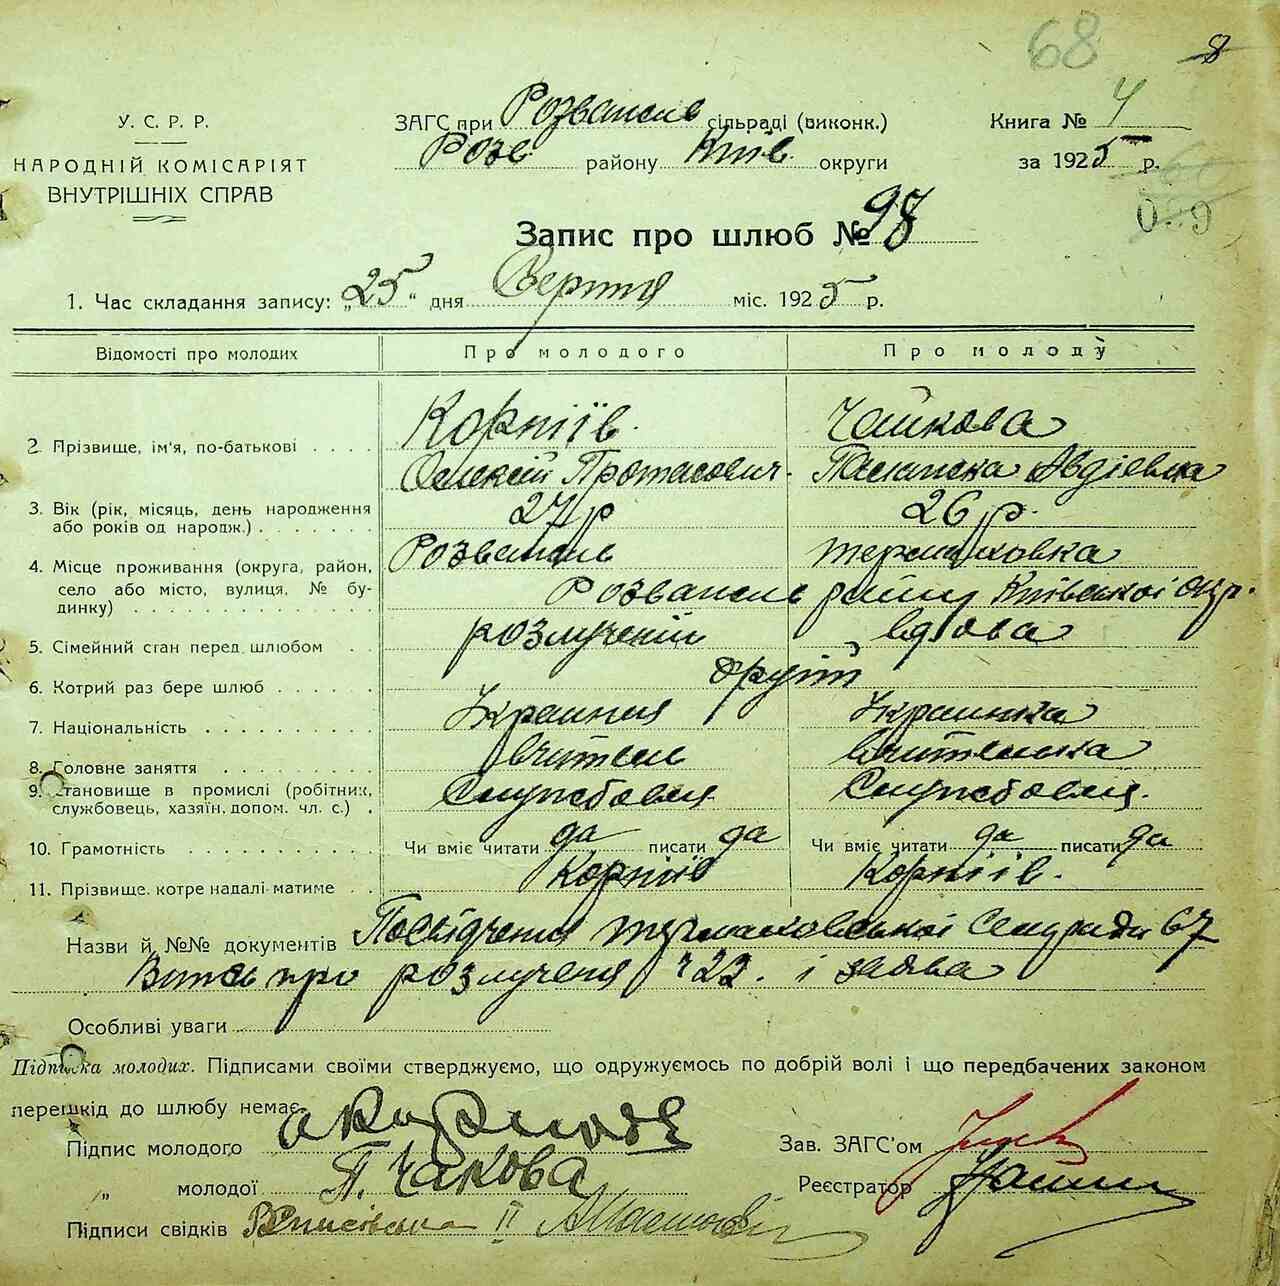 68
8
У. С. Р. Р.
НАРОДНІЙ КОМІСАРІЯТ
ВНУТРІШНІХ СПРАВ
ЗАГС при Розважів сільраді (виконк.)
Розв. району Київ. округи
Книга № 4
за 1925 р.
Запис про шлюб № 98
1. Час складання запису: „25“ дня Вересня міс. 1925 р.
Відомості про молодих
Про молодого
Про молоду
2. Прізвище, ім'я, по-батькові
Корніїв.
Олексій Протасович.
Чайкова
Палажка Авдіевна
3. Вік (рік, місяць, день народження
або років од народж.)
27 р
26 р.
4. Місце проживання (округа, район,
село або місто, вулиця, № бу-
динку)
Розважів
термаховка
Розважів району Київської окр.
5. Сімейний стан перед шлюбом
розлучений
вдова
6. Котрий раз бере шлюб
другий
7. Національність
Українця
Українка
8. Головне заняття
вчитель
вчителька
9. Становище в промислі (робітник,
службовець, хазяїн, допом. чл. с.)
Службовец
Службовец.
10. Грамотність
Чи вміє читати да писати да
Чи вміє читати да писати да
11. Прізвище, котре надалі матиме
Корніїв
Корніїв.
Назви й №№ документів Посвідчення термаховської Сельради 67
Витяг про розлученя ч 22. і заява
Особливі уваги
Підписка молодих. Підписами своїми стверджуємо, що одружуємось по добрій волі і що передбачених законом
перешкід до шлюбу немає.
Підпис молодого
„ молодої П. Чакова
Підписи свідків
Зав. ЗАГС'ом
Реєстратор